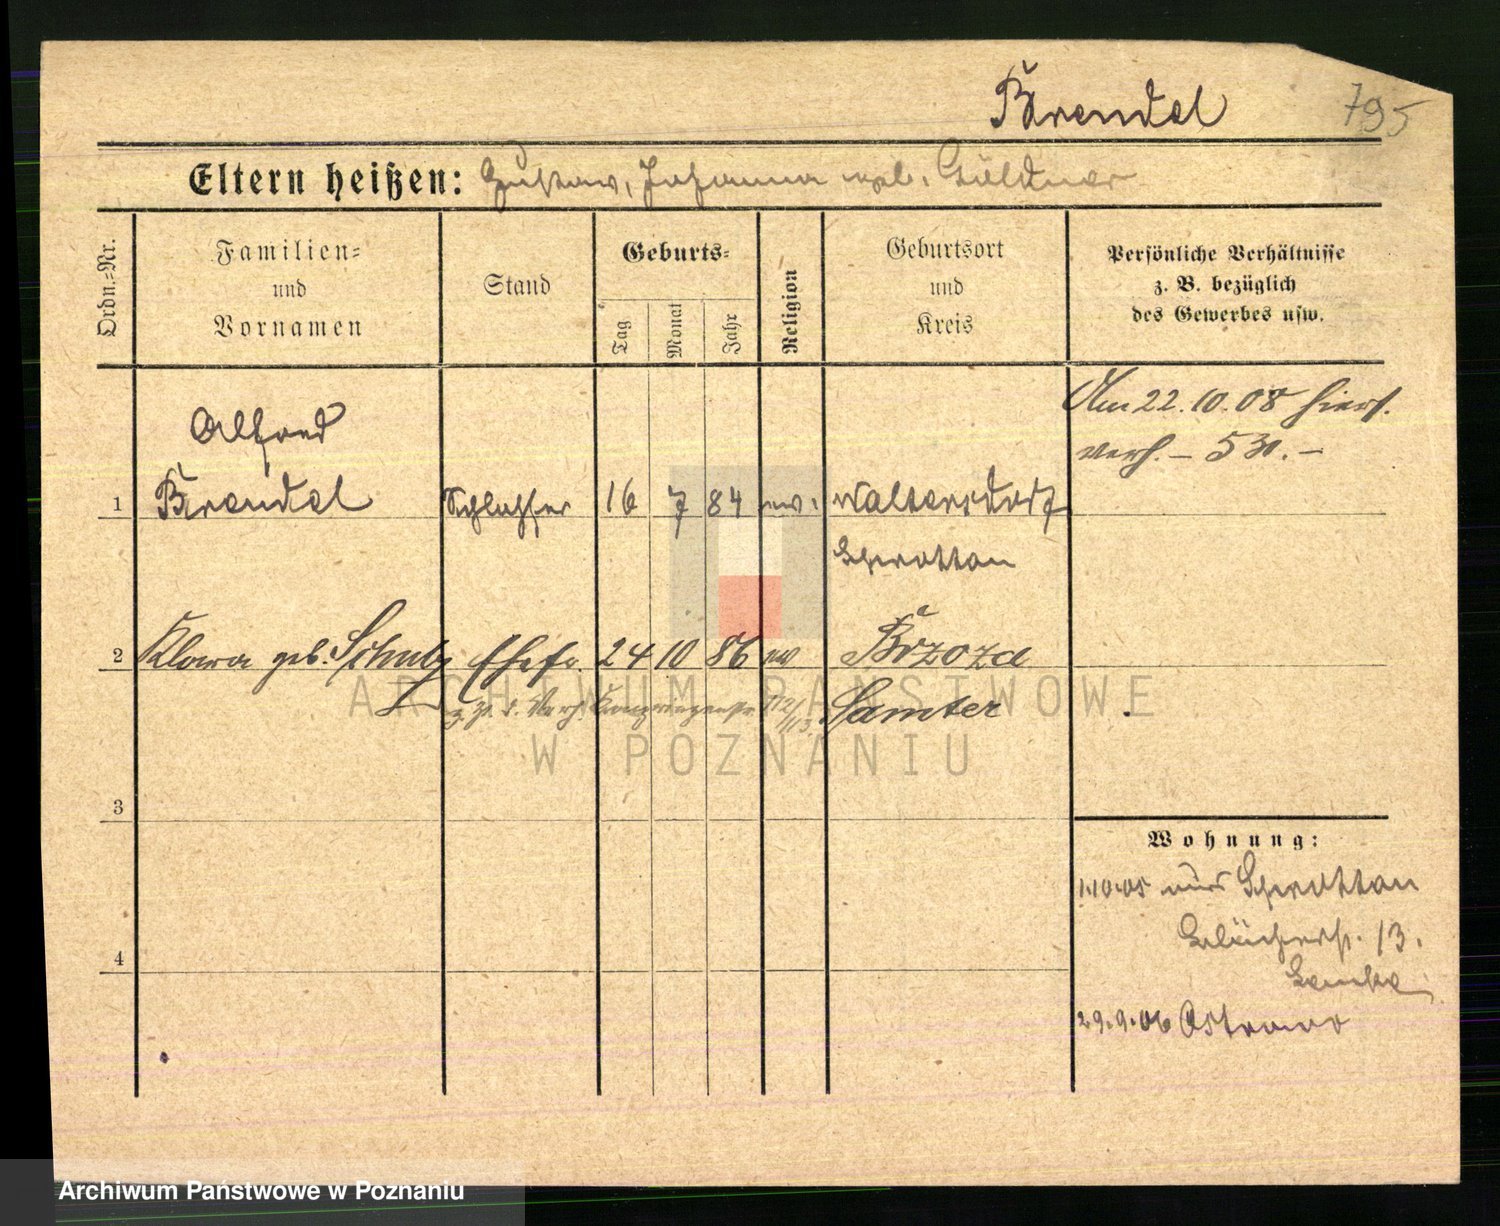 Brendel
795
Eltern heißen: Gustav, Johanna geb. Güldner
Ordn.-Nr.
Familien-
und
Vornamen
Stand
Geburts-
Tag
Monat
Jahr
Religion
Geburtsort
und
Kreis
Persönliche Verhältnisse
z. B. bezüglich
des Gewerbes usw.
Am 22.10.08 hier
verh. – 530. –
Alfred
1 Brendel Schlosser 16 7 84 ev. Waltersdorf
Sprottau
2 Klara geb. Schulz Ehefr. 24 10 86 ev Brzoza
Samter
3
4
Wohnung:
1.10.05 aus Sprottau
Blücherstr. 13.
29.9.06 Ostrowo
ARCHIWUM PAŃSTWOWE
W POZNANIU
Archiwum Państwowe w Poznaniu